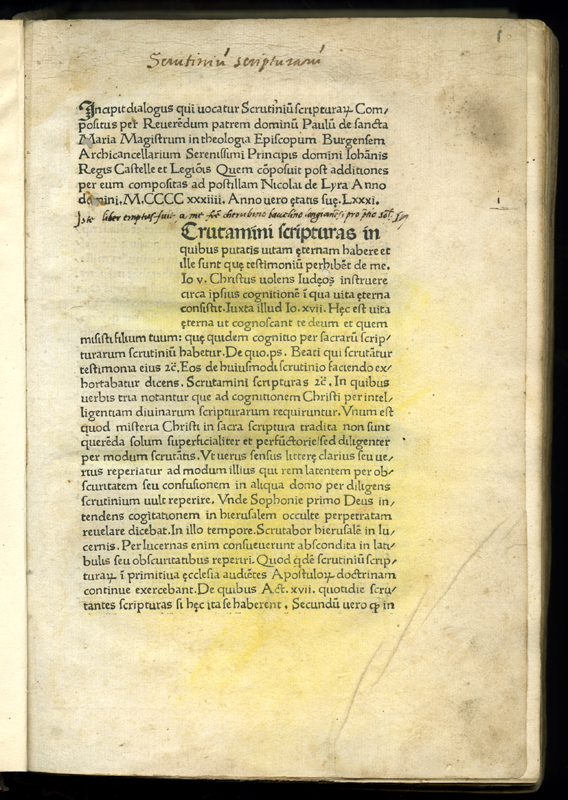 1
Scrutiniū scripturarū
Incipit dialogus qui uocatur Scrutiniū scripturaꝝ Com⸗
positus per Reuerēdum patrem dominū Paulū de sancta
Maria Magistrum in theologia Episcopum Burgensem
Archicancellarium Serenissimi Principis domini Iohānis
Regis Castelle et Legiōis Quem cōposuit post additiones
per eum compositas ad postillam Nicolai de Lyra Anno
domini. M.CCCC xxxiiii. Anno uero ętatis suę. Lxxxi.
Iste liber emptus fuit a me
Crutamini scripturas in
quibus putatis uitam ęternam habere et
ille sunt quę testimoniū perhibēt de me.
Io v. Christus uolens Iudęos instruere
circa ipsius cognitionē ī qua uita ęterna
consistit. Iuxta illud Io. xvii. Hęc est uita
ęterna ut cognoscant te deum et quem
misisti filium tuum: quę quidem cognitio per sacrarū scrip⸗
turarum scrutiniū habetur. De quo. ps. Beati qui scrutātur
testimonia eius ⁊c̄. Eos de huiusmodi scrutinio faciendo ex⸗
hortabatur dicens. Scrutamini scripturas ⁊c̄. In quibus
uerbis tria notantur que ad cognitionem Christi per intel⸗
ligentiam diuinarum scripturarum requiruntur. Vnum est
quod misteria Christi in sacra scriptura tradita non sunt
querēda solum superficialiter et perfūctorie/sed diligenter
per modum scrutātis. Vt uerus sensus litterę clarius seu ue⸗
rius reperiatur ad modum illius qui rem latentem per ob⸗
scuritatem seu confusionem in aliqua domo per diligens
scrutinium uult reperire. Vnde Sophonie primo Deus in⸗
tendens cogitationem in hierusalem occulte perpetratam
reuelare dicebat. In illo tempore. Scrutabor hierusalē in lu⸗
cernis. Per lucernas enim consueuerunt abscondita in lati⸗
bulis seu obscuritatibus reperiri. Quod qdē scrutiniū scrip⸗
turaꝝ ī primitiua ęcclesia audiētes Apostoloꝝ doctrinam
continue exercebant. De quibus Act. xvii. quotidie scru⸗
tantes scripturas si hęc ita se haberent. Secundū uero ꝙ in